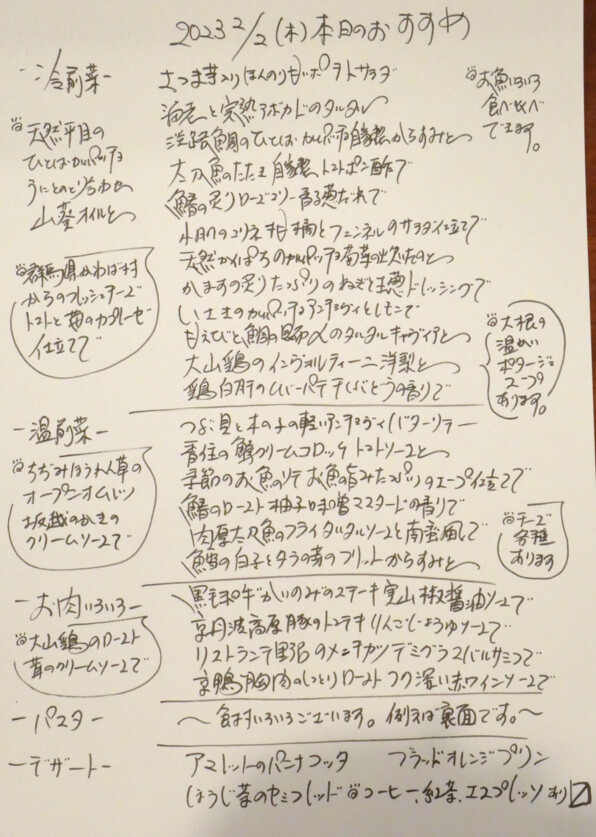 2023 2/2 (木) 本日のおすすめ
-冷前菜-
さつま芋入りほんのり甘いポテトサラダ
海老と完熟アボカドのタルタル
淡路鯛のひとはカルパッチョ自家製からすみと
太刀魚のたたき 自家製トマトポン酢で
鰆の炙りローズマリー香る葱だれで
天然かんぱちのカルパッチョ
かますの炙り たっぷりのねぎと
大山鶏のインヴォルティーニ 洋梨と
鶏白肝のレバーパテ
天然平目の
ひとはカルパッチョ
うにとのとり合わせ
山葵オイルと
群馬県かわば村
からのフレッシュチーズ
トマトと苺のカプレーゼ
仕立てで
お魚いろいろ
食べ比べ
できます。
大根の
温かい
ポタージュ
スープ
あります。
-温前菜-
つぶ貝と木の子の軽いアンチョヴィバターソテー
香住の蟹クリームコロッケ トマトソースと
季節のお魚のソテー お魚の旨みたっぷりのスープ仕立てで
鰆のロースト 柚子味噌マスタードの香りで
肉厚太刀魚のフライ タルタルソースと南蛮風で
鱈の白子とタラの芽のフリット からすみと
ちぢみほうれん草の
オープンオムレツ
坂越のかきの
クリームソースで
チーズ
各種
あります
-お肉いろいろ-
黒毛和牛かいのみのステーキ 実山椒醤油ソースで
京丹波高原豚のトンテキ りんごじょうゆソースで
リストランテ野呂のメンチカツ デミグラスバルサミコで
京鴨胸肉のしっとりロースト コク深い赤ワインソースで
大山鶏のロースト
茸のクリームソースで
-パスタ-
〜食材いろいろございます。例えば裏面です。〜
-デザート-
アマレットのパンナコッタ ブラッドオレンジプリン
ほうじ茶のセミフレッド コーヒー、紅茶、エスプレッソあり